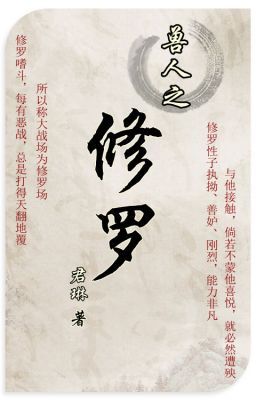 兽人之
修罗
君琳 著
与他接触，倘若不蒙他喜悦，就必然遭殃
修罗性子执拗、善妒、刚烈，能力非凡
所以称大战场为修罗场
修罗嗜斗，每有恶战，总是打得天翻地覆